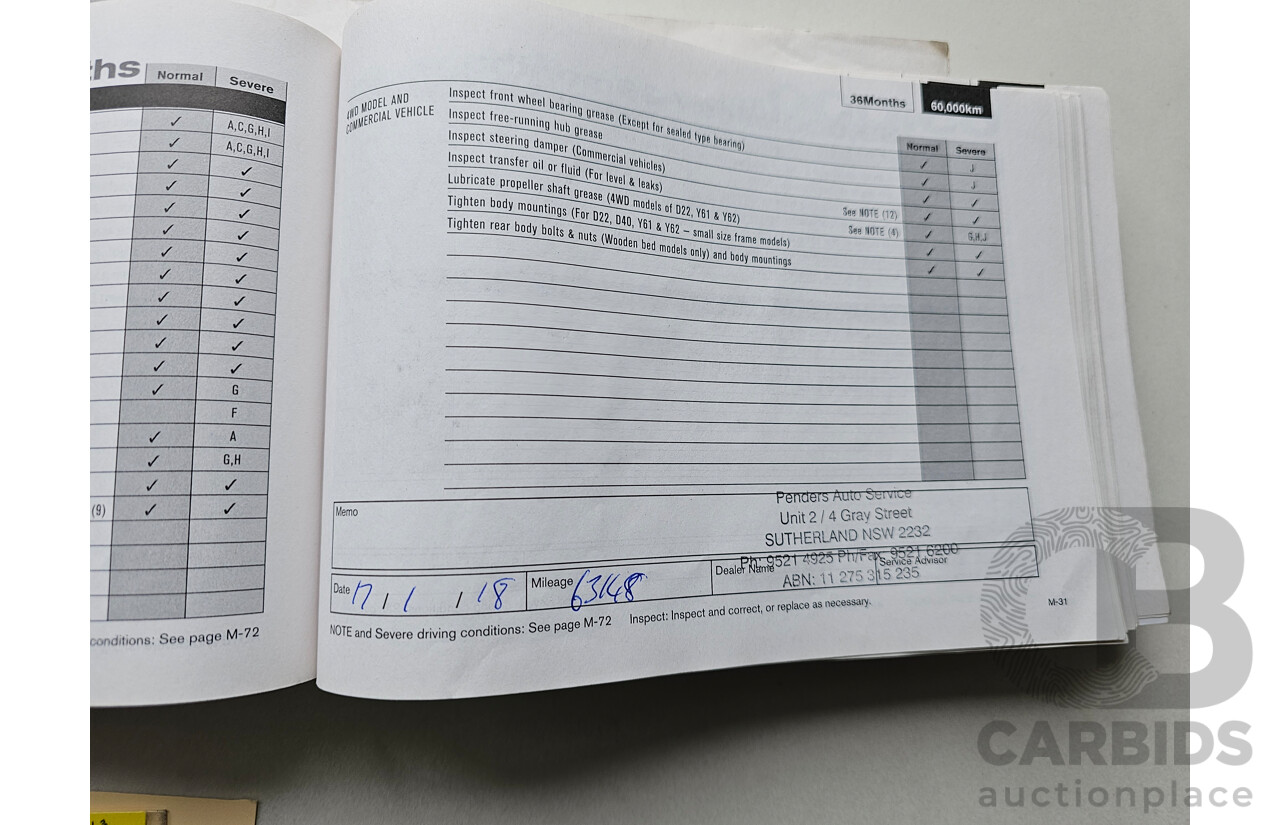 ths
Normal Severe
✓ A,C,G,H,I
✓ A,C,G,H,I
✓ ✓
✓ ✓
✓ ✓
✓ ✓
✓ ✓
✓ ✓
✓ ✓
✓ ✓
✓ ✓
✓ ✓
✓ G
F
✓ A
✓ G,H
✓ ✓
(9) ✓ ✓
conditions: See page M-72
36Months 60,000km
4WD MODEL AND
COMMERCIAL VEHICLE
Normal Severe
Inspect front wheel bearing grease (Except for sealed type bearing) ✓ J
Inspect free-running hub grease ✓ J
Inspect steering damper (Commercial vehicles) ✓ ✓
Inspect transfer oil or fluid (For level & leaks) See NOTE (12) ✓ ✓
Lubricate propeller shaft grease (4WD models of D22, Y61 & Y62) See NOTE (4) ✓ G,H,J
Tighten body mountings (For D22, D40, Y61 & Y62 – small size frame models) ✓ ✓
Tighten rear body bolts & nuts (Wooden bed models only) and body mountings ✓ ✓
Memo
Penders Auto Service
Unit 2 / 4 Gray Street
SUTHERLAND NSW 2232
Ph: 9521 4925 Ph/Fax: 9521 6200
ABN: 11 275 315 235
Date 17 / 1 / 18 Mileage 63148 Dealer Name Service Advisor
NOTE and Severe driving conditions: See page M-72 Inspect: Inspect and correct, or replace as necessary.
M-31
CB
CARBIDS
auctionplace